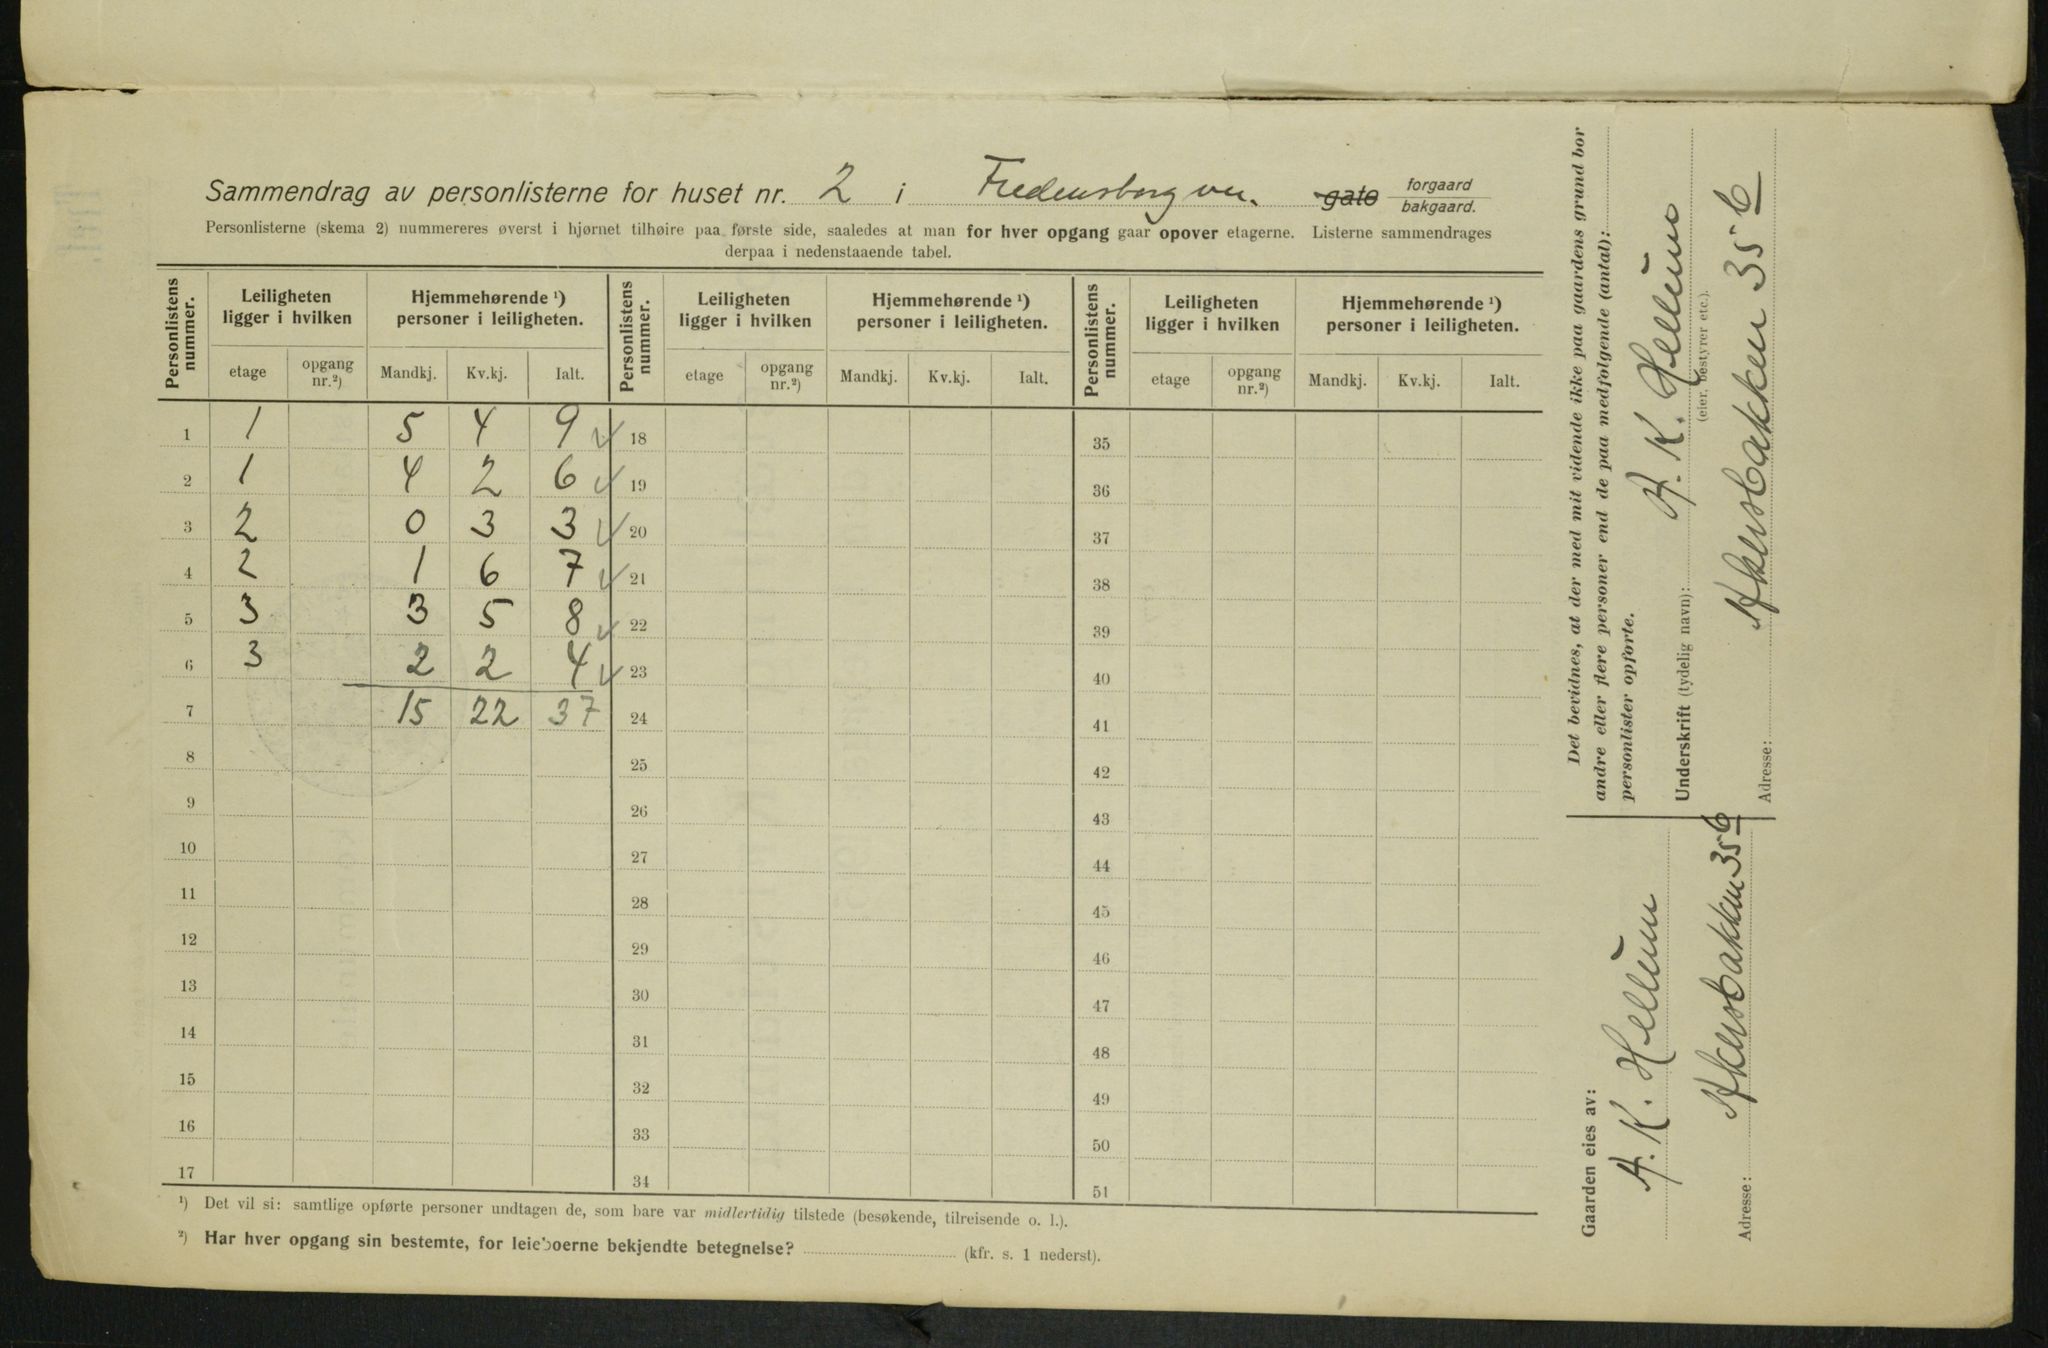 Sammendrag av personlisterne for huset nr. 2 i Fredensborgvei. gate forgaard bakgaard.
Personlisterne (skema 2) nummereres øverst i hjørnet tilhøire paa første side, saaledes at man for hver opgang gaar opover etagerne. Listerne sammendrages
derpaa i nedenstaaende tabel.
Personlistens nummer. Leiligheten ligger i hvilken Hjemmehørende ¹) personer i leiligheten. Personlistens nummer. Leiligheten ligger i hvilken Hjemmehørende ¹) personer i leiligheten. Personlistens nummer. Leiligheten ligger i hvilken Hjemmehørende ¹) personer i leiligheten.
etage opgang nr.²) Mandkj. Kv.kj. Ialt. etage opgang nr.²) Mandkj. Kv.kj. Ialt. etage opgang nr.²) Mandkj. Kv.kj. Ialt.
1 1 5 4 9 ✓ 18 35
2 1 4 2 6 ✓ 19 36
3 2 0 3 3 ✓ 20 37
4 2 1 6 7 ✓ 21 38
5 3 3 5 8 ✓ 22 39
6 3 2 2 4 ✓ 23 40
7 15 22 37 24 41
8 25 42
9 26 43
10 27 44
11 28 45
12 29 46
13 30 47
14 31 48
15 32 49
16 33 50
17 34 51
¹) Det vil si: samtlige opførte personer undtagen de, som bare var midlertidig tilstede (besøkende, tilreisende o. l.).
²) Har hver opgang sin bestemte, for leieboerne bekjendte betegnelse? (kfr. s. 1 nederst).
Det bevidnes, at der med mit vidende ikke paa gaardens grund bor
andre eller flere personer end de paa medfølgende (antal):
personlister opførte.
Underskrift (tydelig navn): A. K. Hellum
(eier, bestyrer etc.).
Adresse: Akersbakken 35 b
Gaarden eies av:
A. K. Hellum
Adresse: Akersbakken 35 b